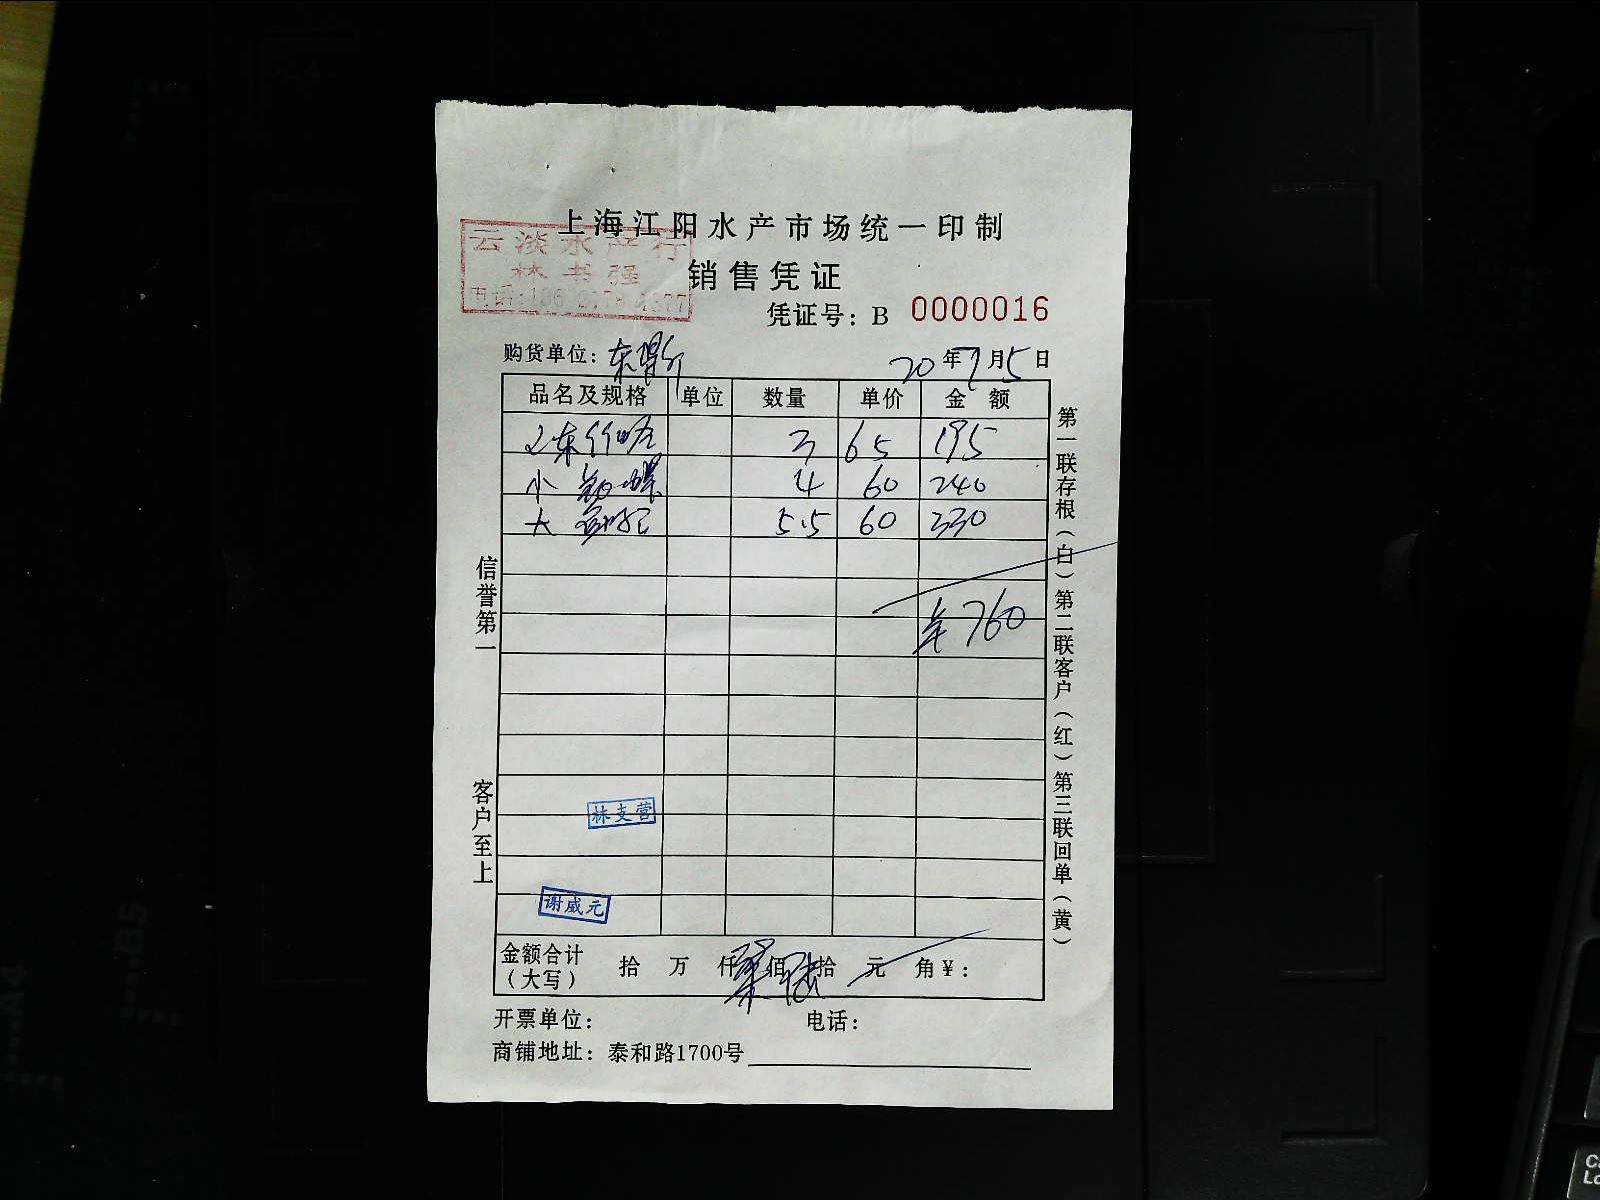 上海江阳水产市场统一印制
云淡水产行
林书强
销售凭证
凭证号：B 0000016
购货单位：
20年7月5日
品名及规格 单位 数量 单价 金额
3 65 195
小 4 60 240
大 5.5 60 330
¥760
信誉第一
客户至上
第一联存根（白）第二联客户（红）第三联回单（黄）
林支营
谢威元
金额合计（大写） 拾 万 仟 柒佰 陆拾 元 角￥：
开票单位： 电话：
商铺地址：泰和路1700号